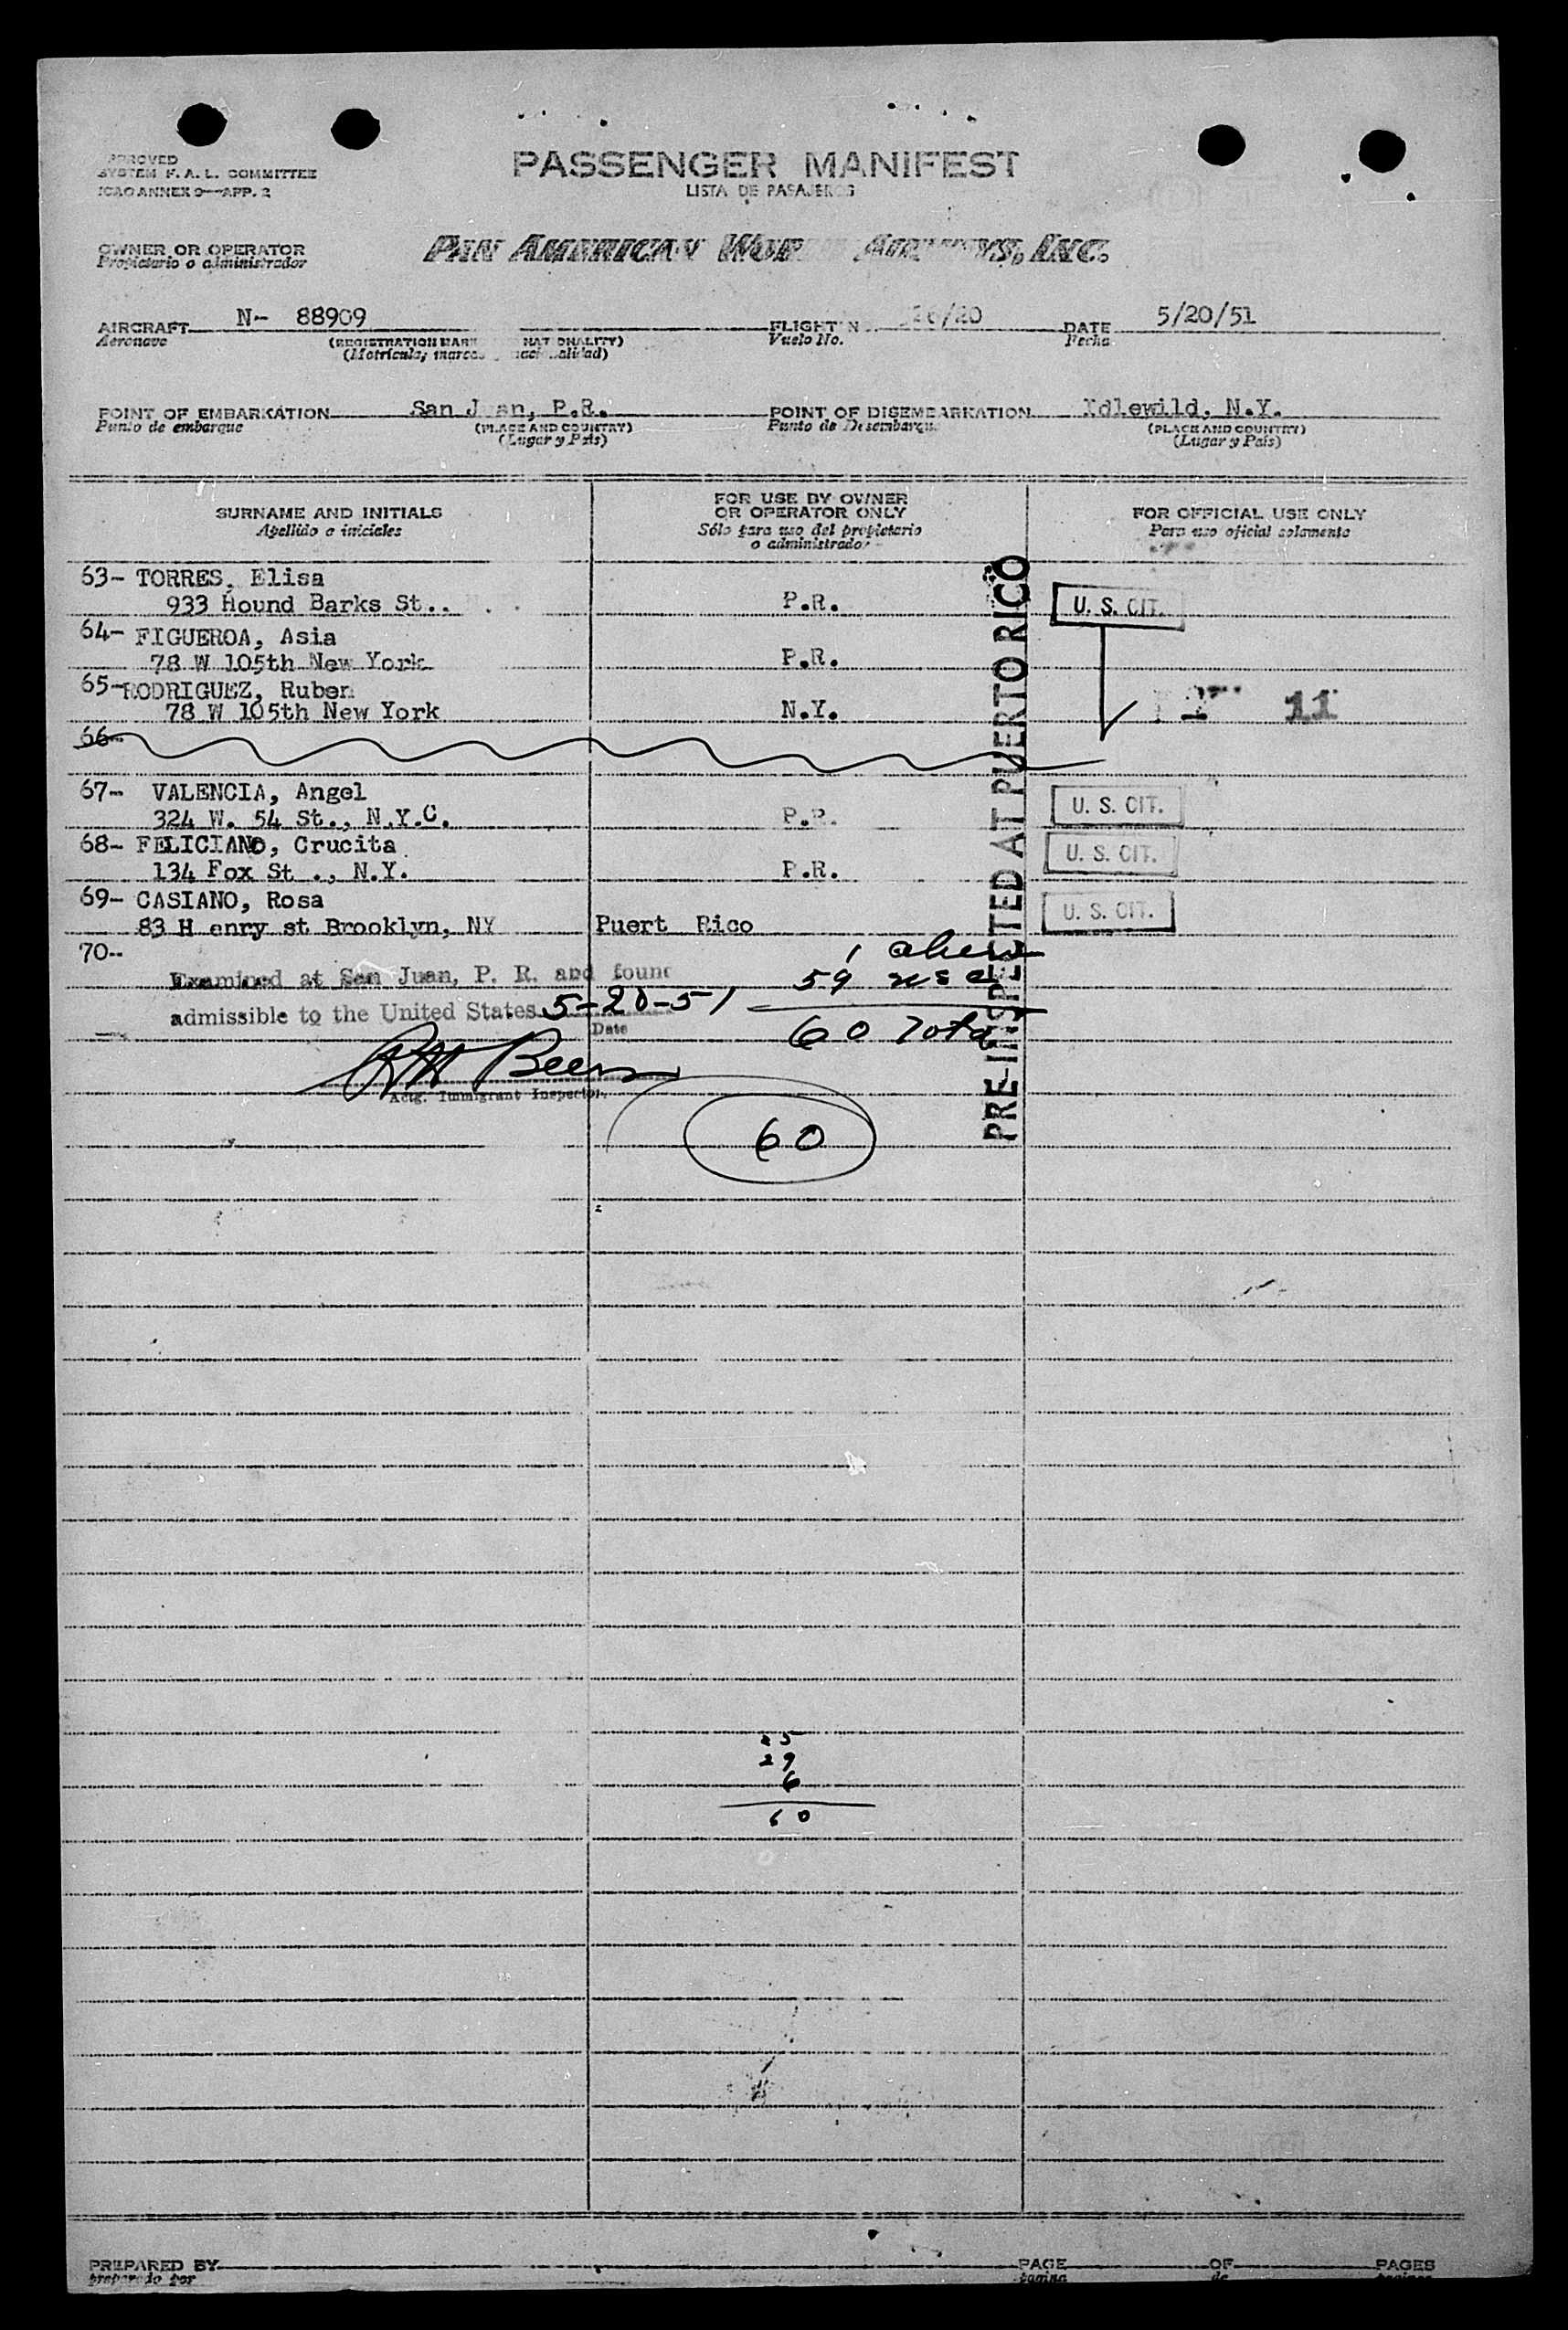 APPROVED
SYSTEM F. A. L. COMMITTEE
ICAO ANNEX 9—APP. 2
PASSENGER MANIFEST
LISTA DE PASAJEROS
OWNER OR OPERATOR
Propietario o administrador
PAN AMERICAN WORLD AIRWAYS, INC.
AIRCRAFT N- 88909 FLIGHT N 26/20 DATE 5/20/51
Aeronave (REGISTRATION MARK NATIONALITY) Vuelo No. Fecha
(Matrícula, marcas nacionalidad)
POINT OF EMBARKATION San Juan, P.R. POINT OF DISEMBARKATION Idlewild, N.Y.
Punto de embarque (PLACE AND COUNTRY) Punto de Desembarque (PLACE AND COUNTRY)
(Lugar y País) (Lugar y País)
SURNAME AND INITIALS FOR USE BY OWNER OR OPERATOR ONLY FOR OFFICIAL USE ONLY
Apellido o iniciales Sólo para uso del propietario o administrador Para uso oficial solamente
63- TORRES, Elisa
933 Hound Barks St.. P.R. U. S. CIT.
64- FIGUEROA, Asia
78 W 105th New York P.R.
65- RODRIGUEZ, Ruben
78 W 105th New York N.Y. 11
66-
67- VALENCIA, Angel
324 W. 54 St., N.Y.C. P.R. U. S. CIT.
68- FELICIANO, Crucita
134 Fox St ., N.Y. P.R. U. S. CIT.
69- CASIANO, Rosa
83 H enry st Brooklyn, NY Puert Rico U. S. CIT.
70-
1 alien
Examined at San Juan, P. R. and found 59 usc
admissible to the United States 5-20-51
Date
60 Total
Beers
Actg. Immigrant Inspector.
60
PRE-INSPECTED AT PUERTO RICO
25
29
6
60
PREPARED BY PAGE OF PAGES
preparado por pagina de paginas